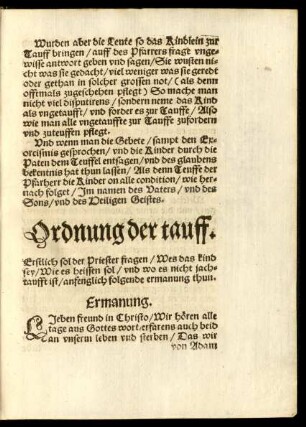 Wurden aber die Leute so das Kindlein zur
Tauff bringen / auff des Pfarrers fragt vnge-
wisse antwort geben vnd sagen / Sie wusten ni-
cht was sie gedacht / viel weniger was sie geredt
oder gethan in solcher grossen not / ( als denn
offtmals zugeschehen pflegt ) So mache man
nicht viel disputirens / sondern neme das Kind
als vngetaufft / vnd forder es zur Tauffe / Also
wie man alle vngetauffte zur Tauffe zufordern
vnd zuteuffen pflegt.
Vnd wenn man die Gebete / sampt den Ex-
orcismis gesprochen / vnd die Kinder durch die
Paten dem Teuffel entsagen / vnd des glaubens
bekentnis hat thun lassen / Als denn Teuffe der
Pfarherr die Kinder on alle condition / wie her-
nach folget / Im namen des Vaters / vnd des
Sons / vnd des Heiligen Geistes.
Ordnung der tauff.
Erstlich sol der Priester fragen / Wes das kind
sey / Wie es heissen sol / vnd wo es nicht jach-
taufft ist / anfenglich folgende ermanung thun.
Ermanung.
LIeben freund in Christo / Wir hören alle
tage aus Gottes wort / erfarens auch beid
an vnserm leben vnd sterben / Das wir
von Adam